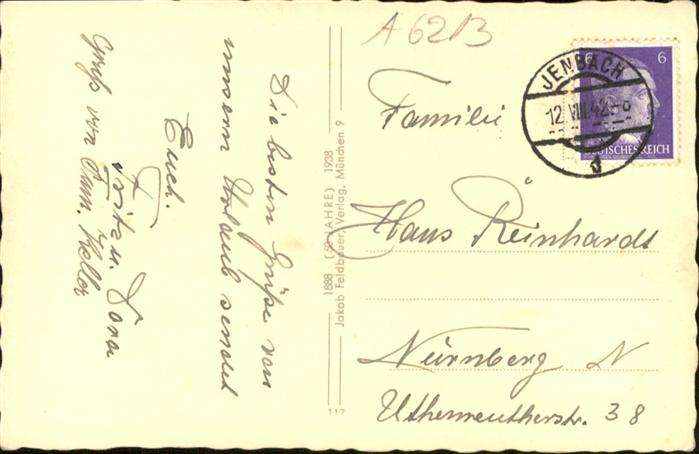 Die besten Grüße von
unserm Urlaub sendet
Euch.
Fritz u. Dora
Gruß von Fam. Keller
1888 (50 JAHRE) 1938
Jakob Feldbauer, Verlag, München 9
117
A 6213
JENBACH
12.VIII.42
d
6
DEUTSCHES REICH
Familie
Hans Reinhardt
Nürnberg N
38